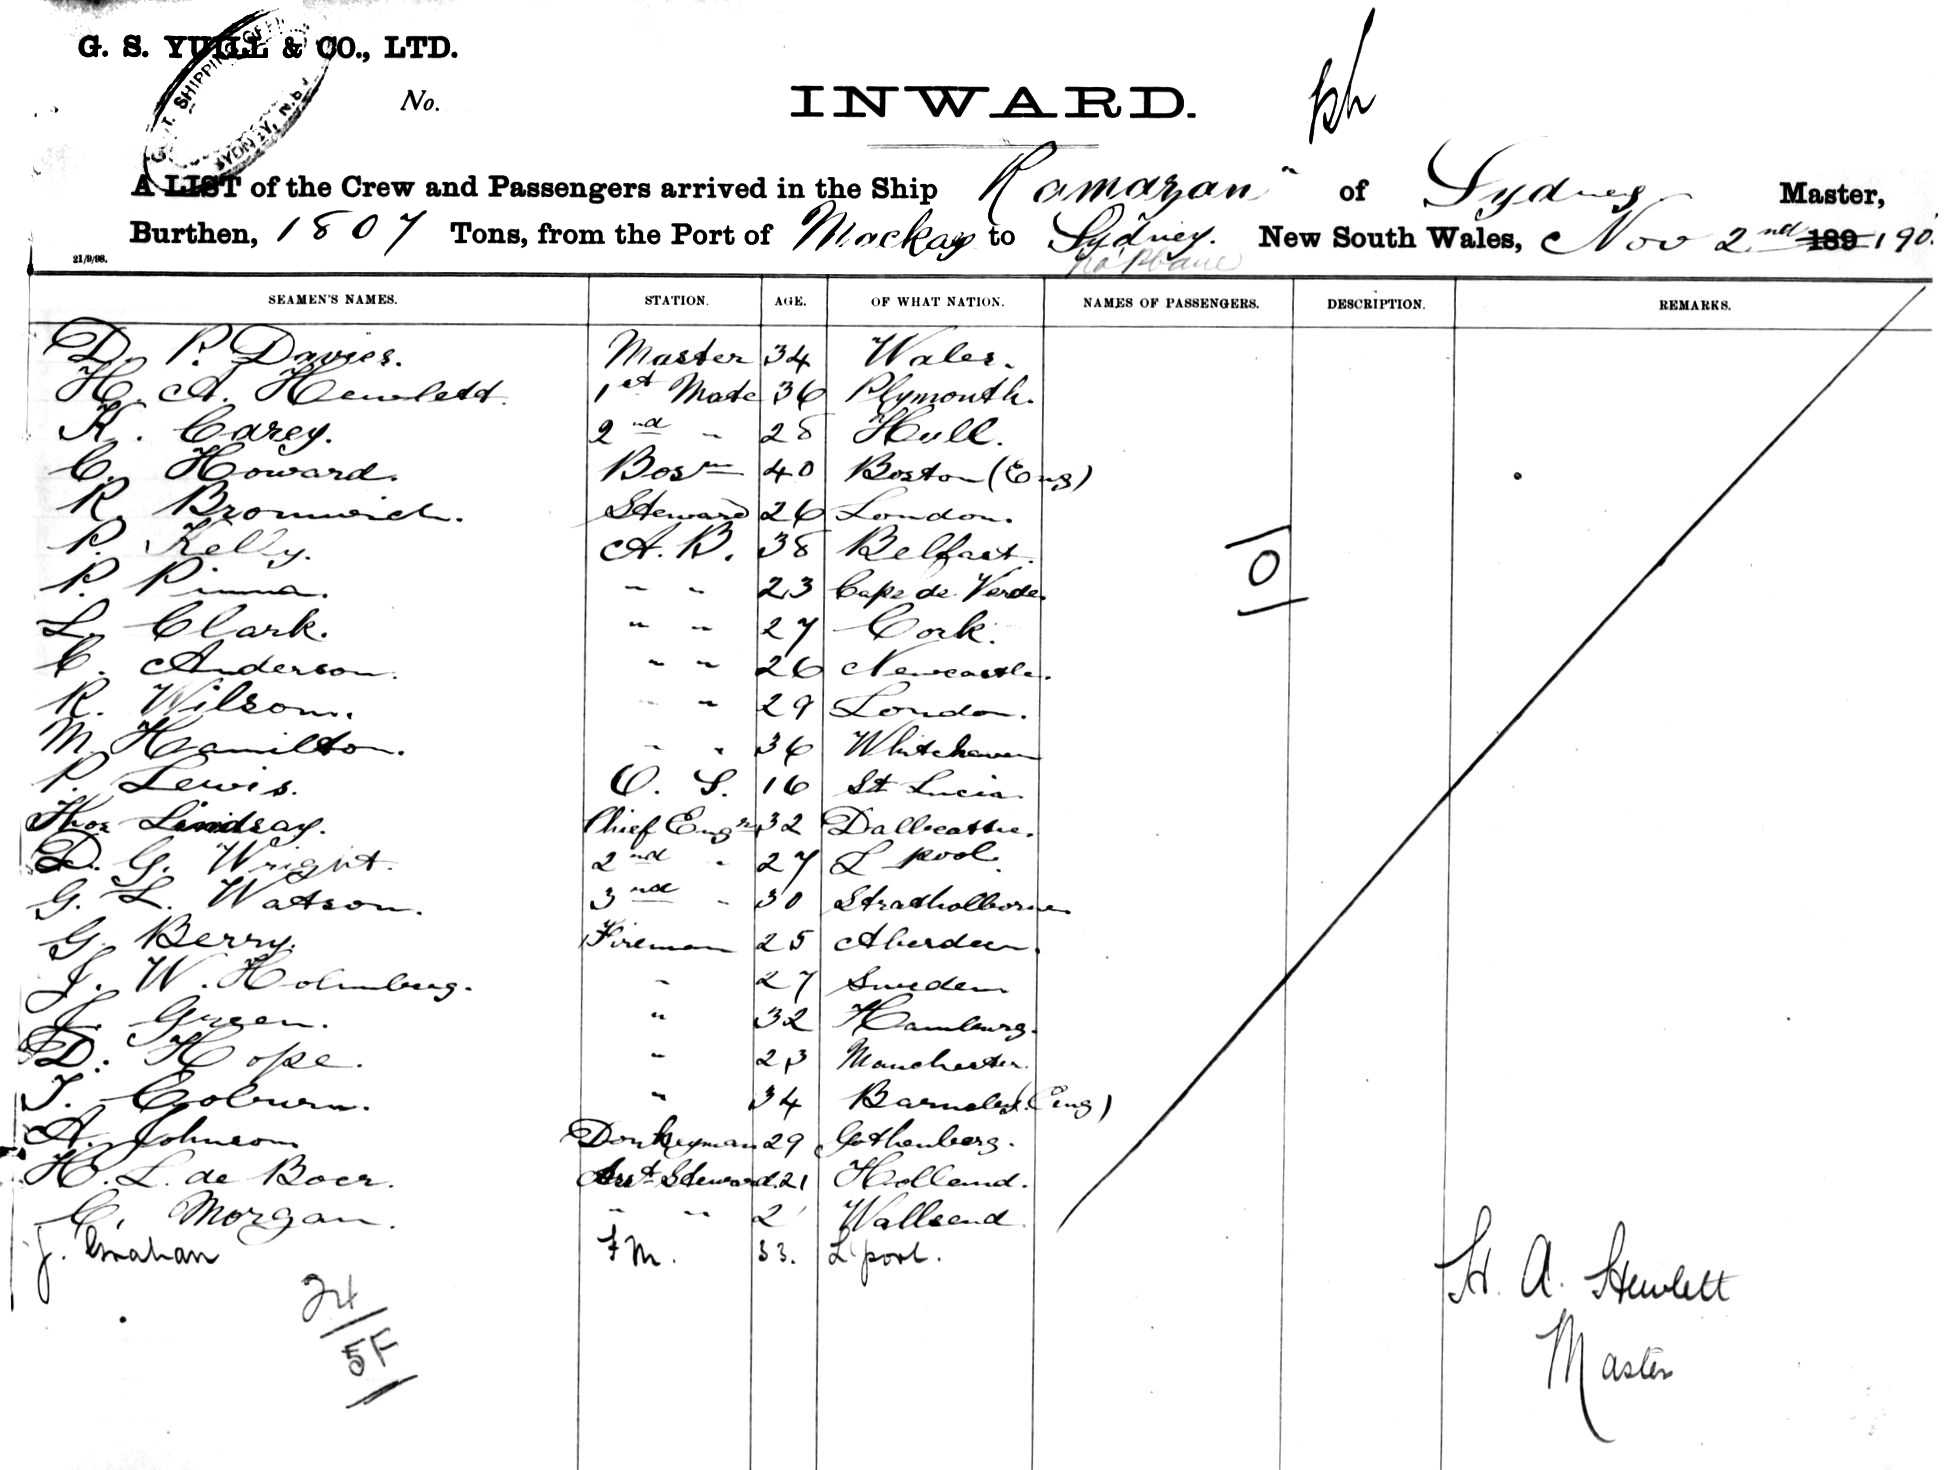 G. S. YUILL & CO., LTD.
No.
INWARD.
A LIST of the Crew and Passengers arrived in the Ship Ramazan of Sydney Master,
Burthen, 1807 Tons, from the Port of Mackay to Sydney. New South Wales, Nov 2nd 189 190
21/9/98.
SEAMEN'S NAMES. STATION. AGE. OF WHAT NATION. NAMES OF PASSENGERS. DESCRIPTION. REMARKS.
D. P. Davies. Master 34 Wales.
H. A. Hewlett. 1st Mate 36 Plymouth.
K. Carey. 2nd " 28 Hull.
C. Howard. Bosn 40 Boston (Eng)
R. Bromwich. Steward 26 London.
P. Kelly. A. B. 38 Belfast.
P. Pinna. " " 23 Cape de Verde.
L. Clark. " " 27 Cork.
C. Anderson. " " 26 Newcastle.
R. Wilson. " " 29 London.
M. Hamilton. " " 36 Whitehaven
P. Lewis. O. S. 16 St Lucia.
Thos Lindsay. Chief Engr 32 Dalbeattie.
D. G. Wright. 2nd " 27 L pool.
G. L. Watson. 3nd " 30
G. Berry. Fireman 25 Aberdeen.
J. W. Holmberg. " 27 Sweden
J. Green. " 32 Hamburg.
D. Hope. " 23 Manchester.
T. Coburn. " 34 Barnsley (Eng)
A. Johnson Donkeyman 29 Gothenberg.
H. L. de Boer. Asst Steward. 21 Holland.
C. Morgan. " " 2 Wallsend
J. Grahan F M. 33. L pool.
10
24
5F
H. A. Hewlett
Master